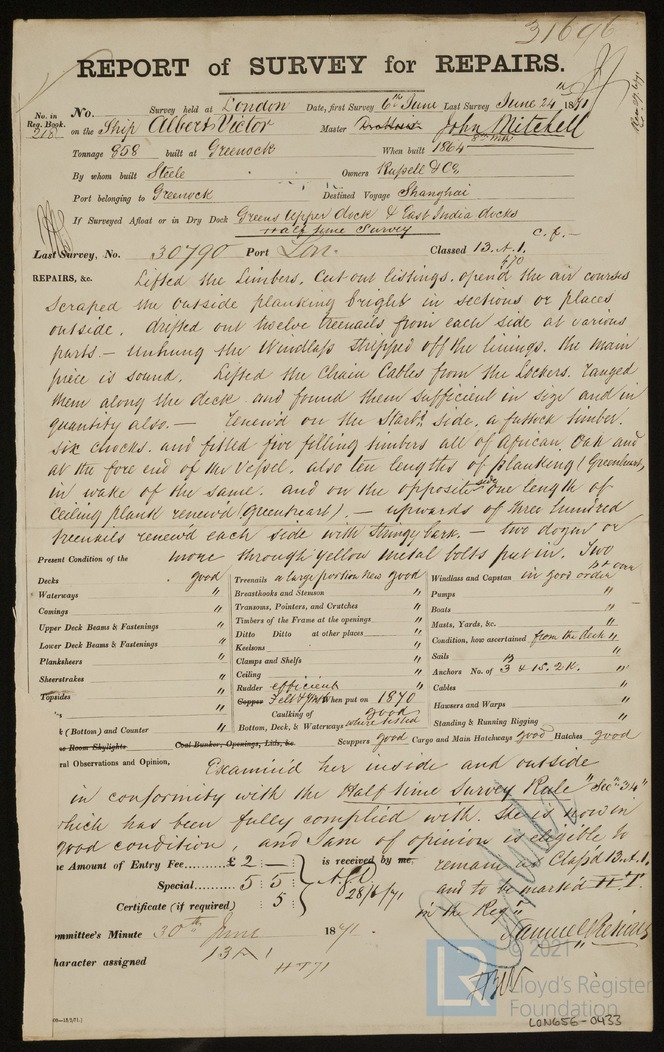 31696
REPORT of SURVEY for REPAIRS.
No. in Reg. Book. 218
No. Survey held at London Date, first Survey 6th June Last Survey June 24th 1871
on the Ship Albert Victor Master John Mitchell
Tonnage 858 built at Greenock When built 1864
By whom built Steele Owners Russell & Co
Port belonging to Greenock Destined Voyage Shanghai
If Surveyed Afloat or in Dry Dock Greens Upper dock & East India docks
Half time Survey
Last Survey, No. 30790 Port Lon. Classed 13.A.1. c.f.-
6/70
REPAIRS, &c. Lifted the Limbers, Cut out listings. open'd the air courses
Scraped the outside planking bright in sections or places
outside. drifted out twelve treenails from each side at various
parts - Unhung the Windlass stripped off the linings. the main
piece is sound. Lifted the Chain Cables from the Lockers. ranged
them along the deck and found them sufficient in size and in
quantity also. - renew'd on the Starbd side, a futtock timber.
six chocks. and fitted five filling timbers all of African Oak and
at the fore end of the Vessel. also ten lengths of planking (Greenheart,
in wake of the same. and on the opposite side one length of
Ceiling plank renew'd (Greenheart). - upwards of three hundred
treenails renew'd each side with Stringy bark. - two dozen or
more through yellow metal bolts put in. Two
Present Condition of the
Decks good
Waterways "
Comings "
Upper Deck Beams & Fastenings "
Lower Deck Beams & Fastenings "
Planksheers "
Sheerstrakes "
Topsides "
"
(Bottom) and Counter "
Room Skylights
Treenails a large portion New good
Breasthooks and Stemson "
Transoms, Pointers, and Crutches "
Timbers of the Frame at the openings "
Ditto Ditto at other places "
Keelsons "
Clamps and Shelfs "
Ceiling "
Rudder efficient "
Copper Felt & YM when put on 1870
Caulking of good
Bottom, Deck, & Waterways where tested
Coal Bunker, Openings, Lids, &c.
Windlass and Capstan in good order
Pumps "
Boats "
Masts, Yards, &c. "
Condition, how ascertained from the deck "
Sails "
Anchors No. of 3 B & 1S. 2K. "
Cables "
Hawsers and Warps "
Standing & Running Rigging "
Scuppers good Cargo and Main Hatchways good Hatches good
ral Observations and Opinion, Examin'd her inside and outside
in conformity with the Half time Survey Rule "Sec" 34"
which has been fully complied with. She is now in
good condition, and I am of opinion is eligible to
remain as Class'd 13.A.1.
and to be mark'd H.T.
in the Reg"
Amount of Entry Fee......£ 2 : - : is received by me,
Special......... 5 : 5 28/6/71
Certificate (if required) 5
ommittee's Minute 30th June 1871.
haracter assigned 13 A 1
HT71
© 2021
LR
Lloyd's Register
Foundation
LON656-0433